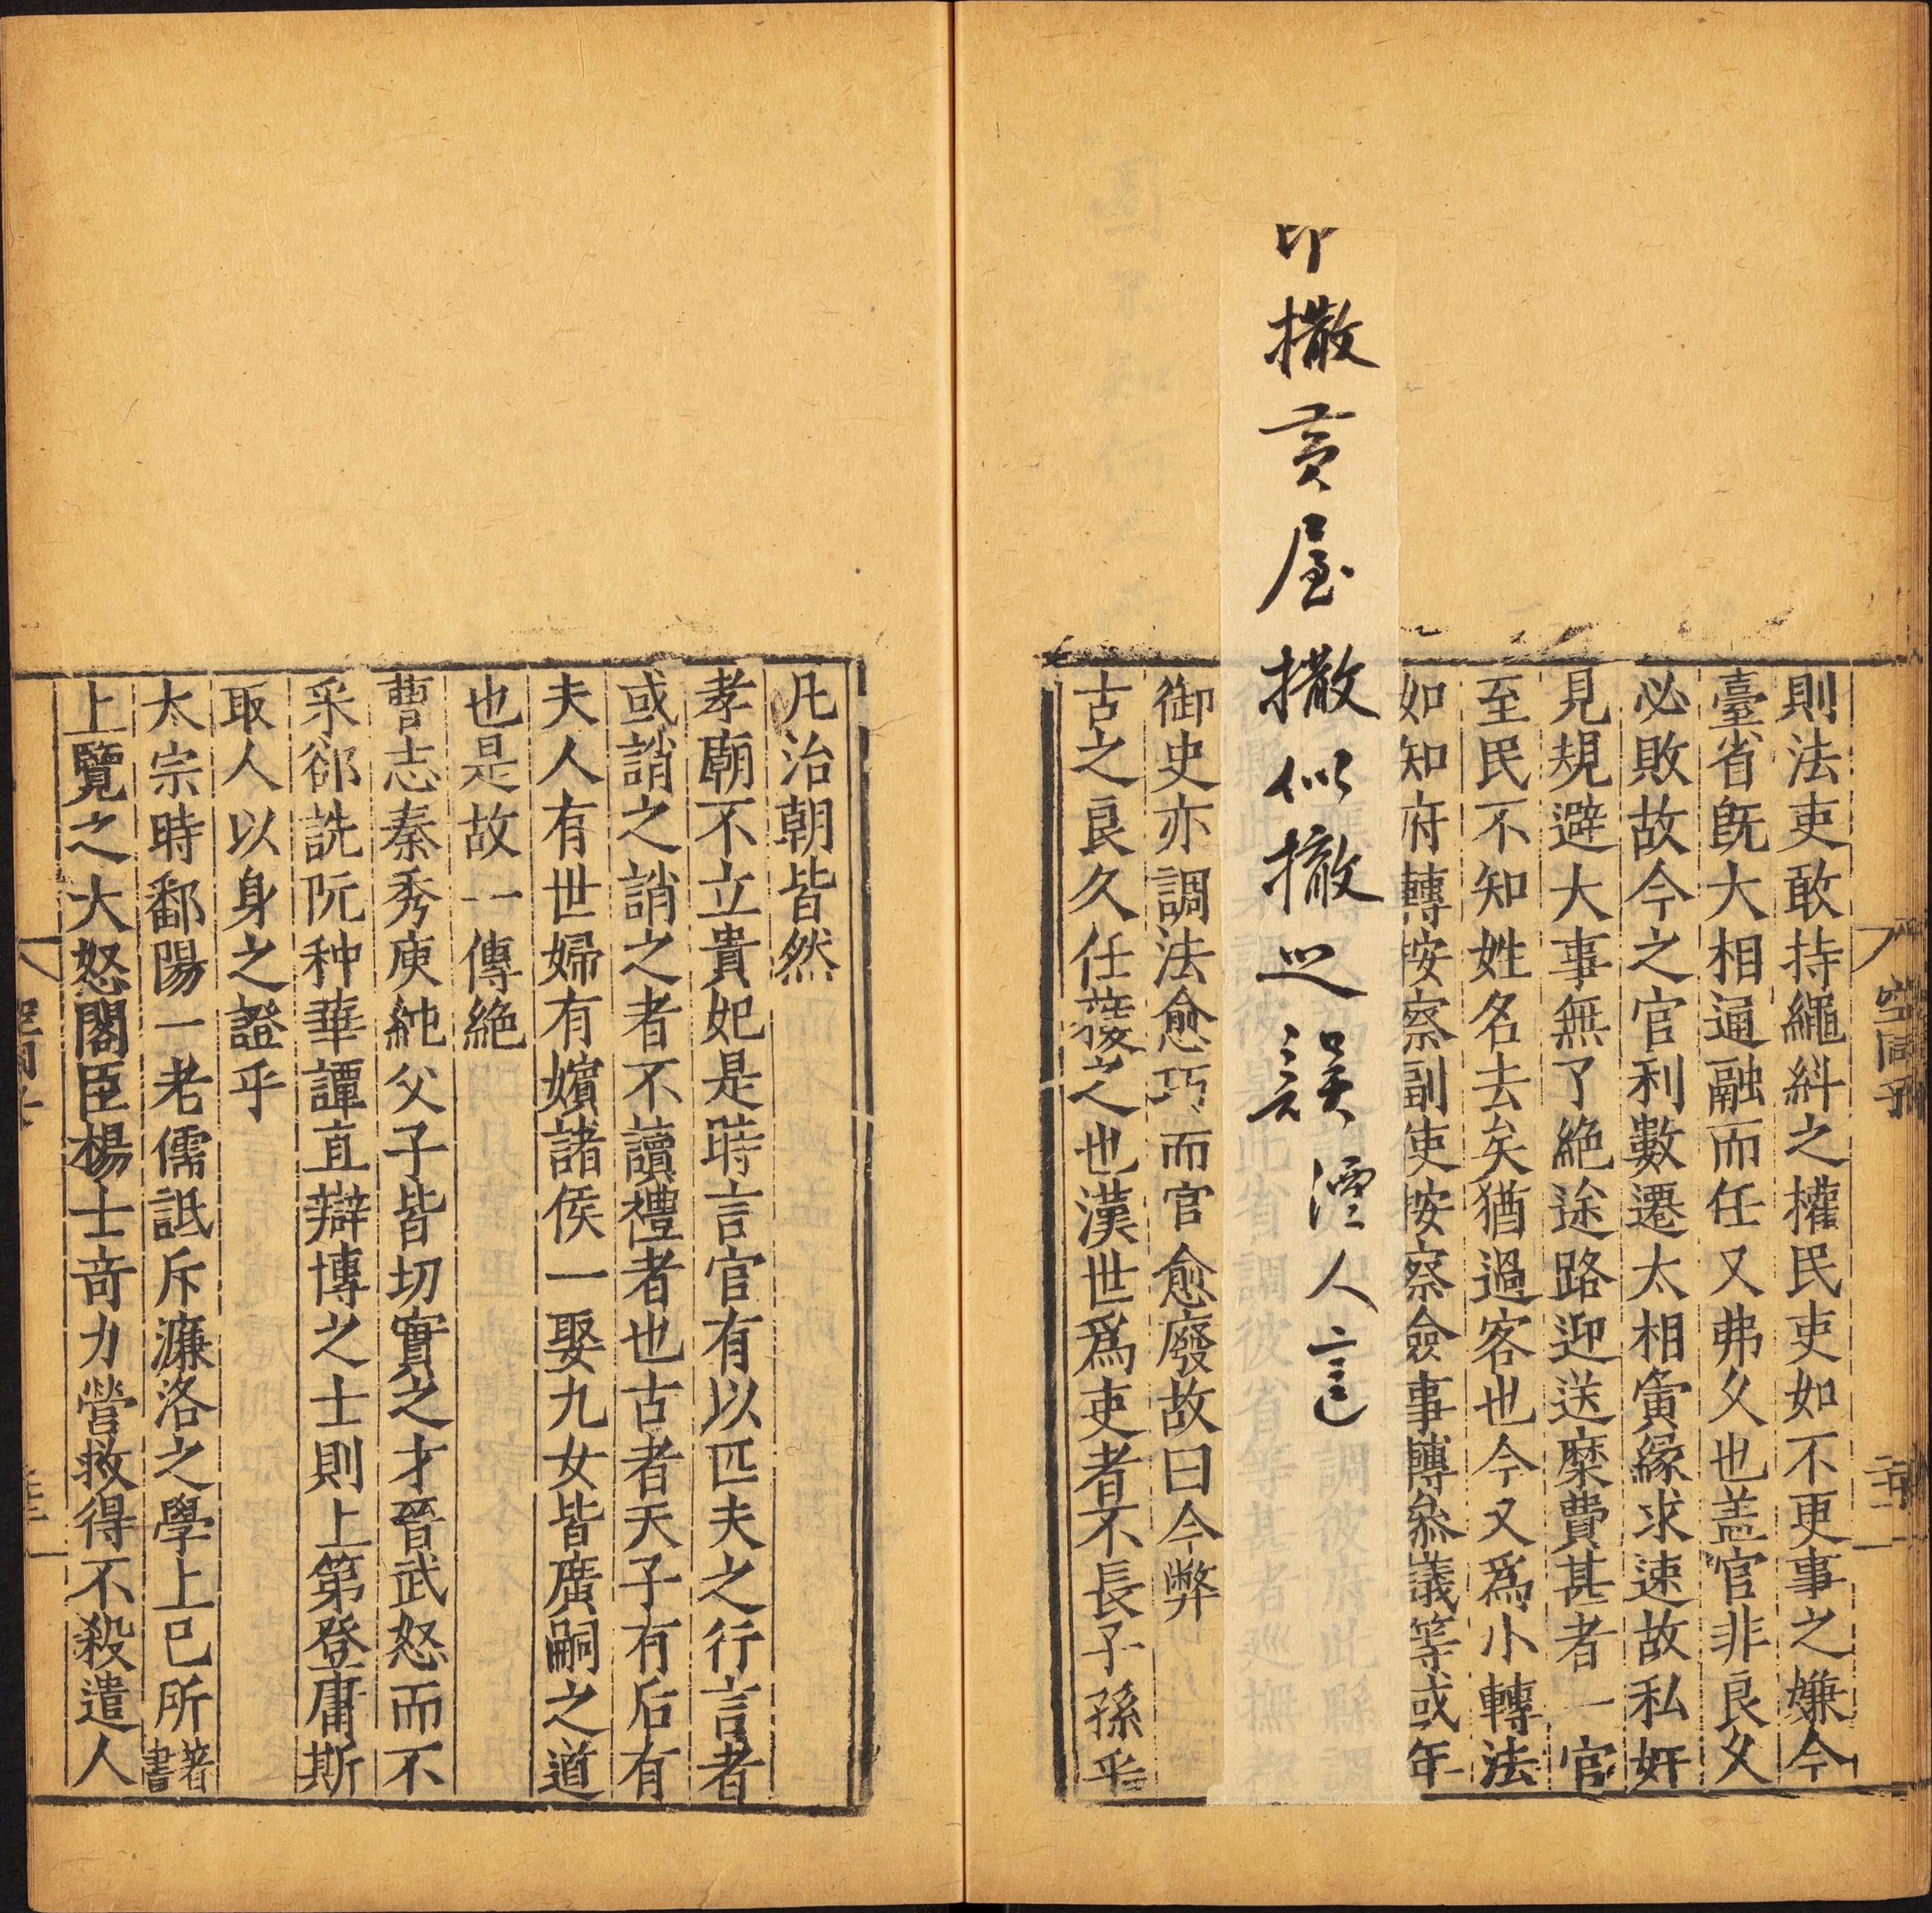 空同子
則法吏敢持繩糾之權民吏如不更事之嫌今
臺省旣大相逼融而任又弗久也盖官非良久
必敗故今之官利數遷太相夤緣求速故私奸
見規避大事無了絶途路迎送糜費甚者一官
至民不知姓名去矣猶過客也今又爲小轉法
如知府轉按察副使按察僉事轉叅議等或年
印撒黃屋撒似撤之誤
人言
御史亦調法愈巧而官愈廢故曰今弊
古之良久任獲之也漢世爲吏者不長子孫乎
凡治朝皆然
孝廟不立貴妃是時言官有以匹夫之行言者
或誚之誚之者不讀禮者也古者天子有后有
夫人有世婦有嬪諸侯一娶九女皆廣嗣之道
也是故一傳絶
曹志秦秀庾純父子皆切實之才晉武怒而不
采郤詵阮种華譚直辯博之士則上第登庸斯
取人以身之證乎
太宗時鄱陽一老儒詆斥濂洛之學上已所著書
上覽之大怒閣臣楊士奇力營救得不殺遣人